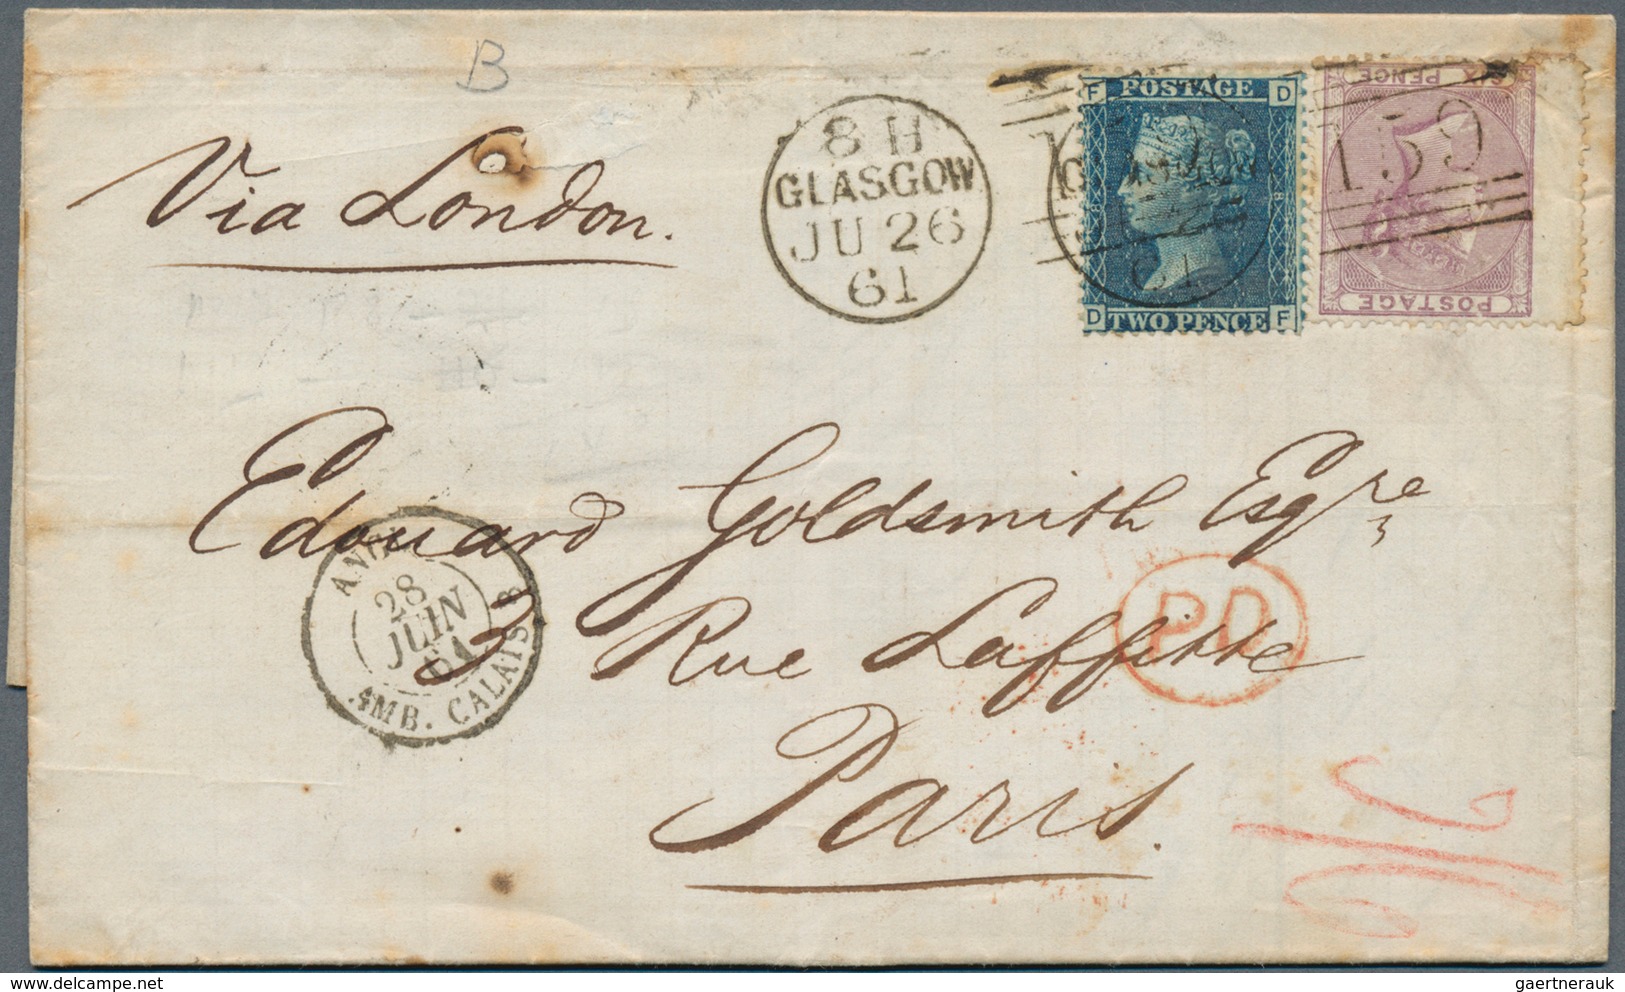 B
Via London.
8 H
GLASGOW
JU 26
61
F POSTAGE D
D TWO PENCE F
GLASGOW
61
159
SIX PENCE
POSTAGE
Edouard Goldsmith Esqre
3 Rue Laffitte
Paris.
28
JUIN
61
AMB. CALAIS B
PD
gaertnerauk